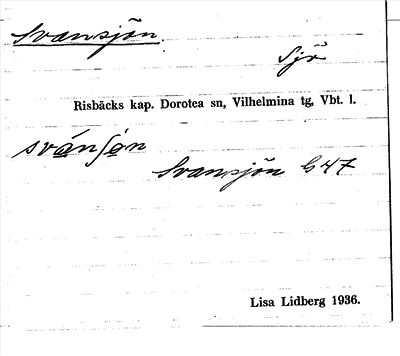 Svansjön.
Sjö
Risbäcks kap. Dorotea sn, Vilhelmina tg, Vbt. l.
Svansjön G 47
Lisa Lidberg 1936.